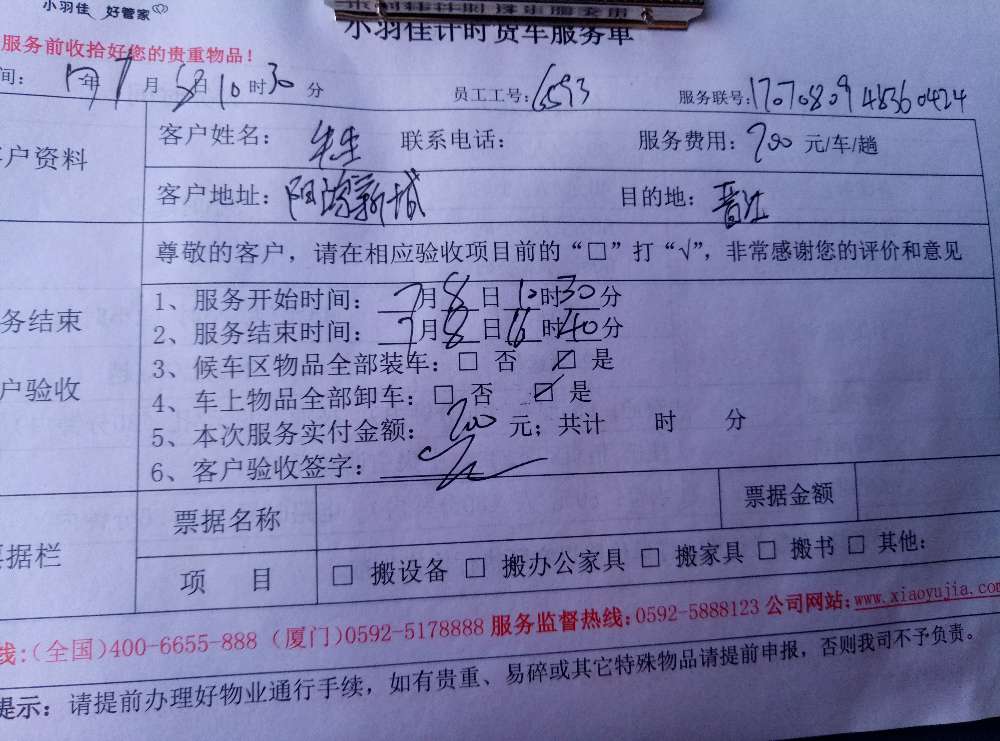 小羽佳 好管家
小羽佳计时货车服务单
服务前收拾好您的贵重物品！
间： 17年7月8日10时30分 员工工号：6593 服务联号：1707080948360424
户资料 客户姓名： 先生 联系电话： 服务费用：700元/车/趟
客户地址： 新城 目的地：晋江
尊敬的客户，请在相应验收项目前的“□”打“√”，非常感谢您的评价和意见
务结束
户验收
1、服务开始时间： 7月8日10时30分
2、服务结束时间： 7月8日16时40分
3、候车区物品全部装车：□ 否 ☑ 是
4、车上物品全部卸车：□ 否 ☑ 是
5、本次服务实付金额： 700 元；共计 时 分
6、客户验收签字：
票据栏 票据名称 票据金额
项 目 □ 搬设备 □ 搬办公家具 □ 搬家具 □ 搬书 □ 其他：
线：（全国）400-6655-888（厦门）0592-5178888 服务监督热线：0592-5888123 公司网站：www.xiaoyujia.com
提示：请提前办理好物业通行手续，如有贵重、易碎或其它特殊物品请提前申报，否则我司不予负责。